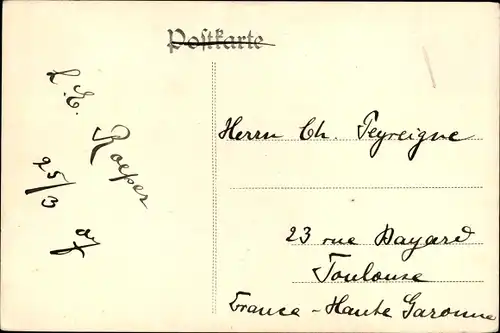 Postkarte
L. E. Roeper
25/3
Herrn Ch. Peyreigne
23 rue Bayard
Toulouse
France - Haute Garonne